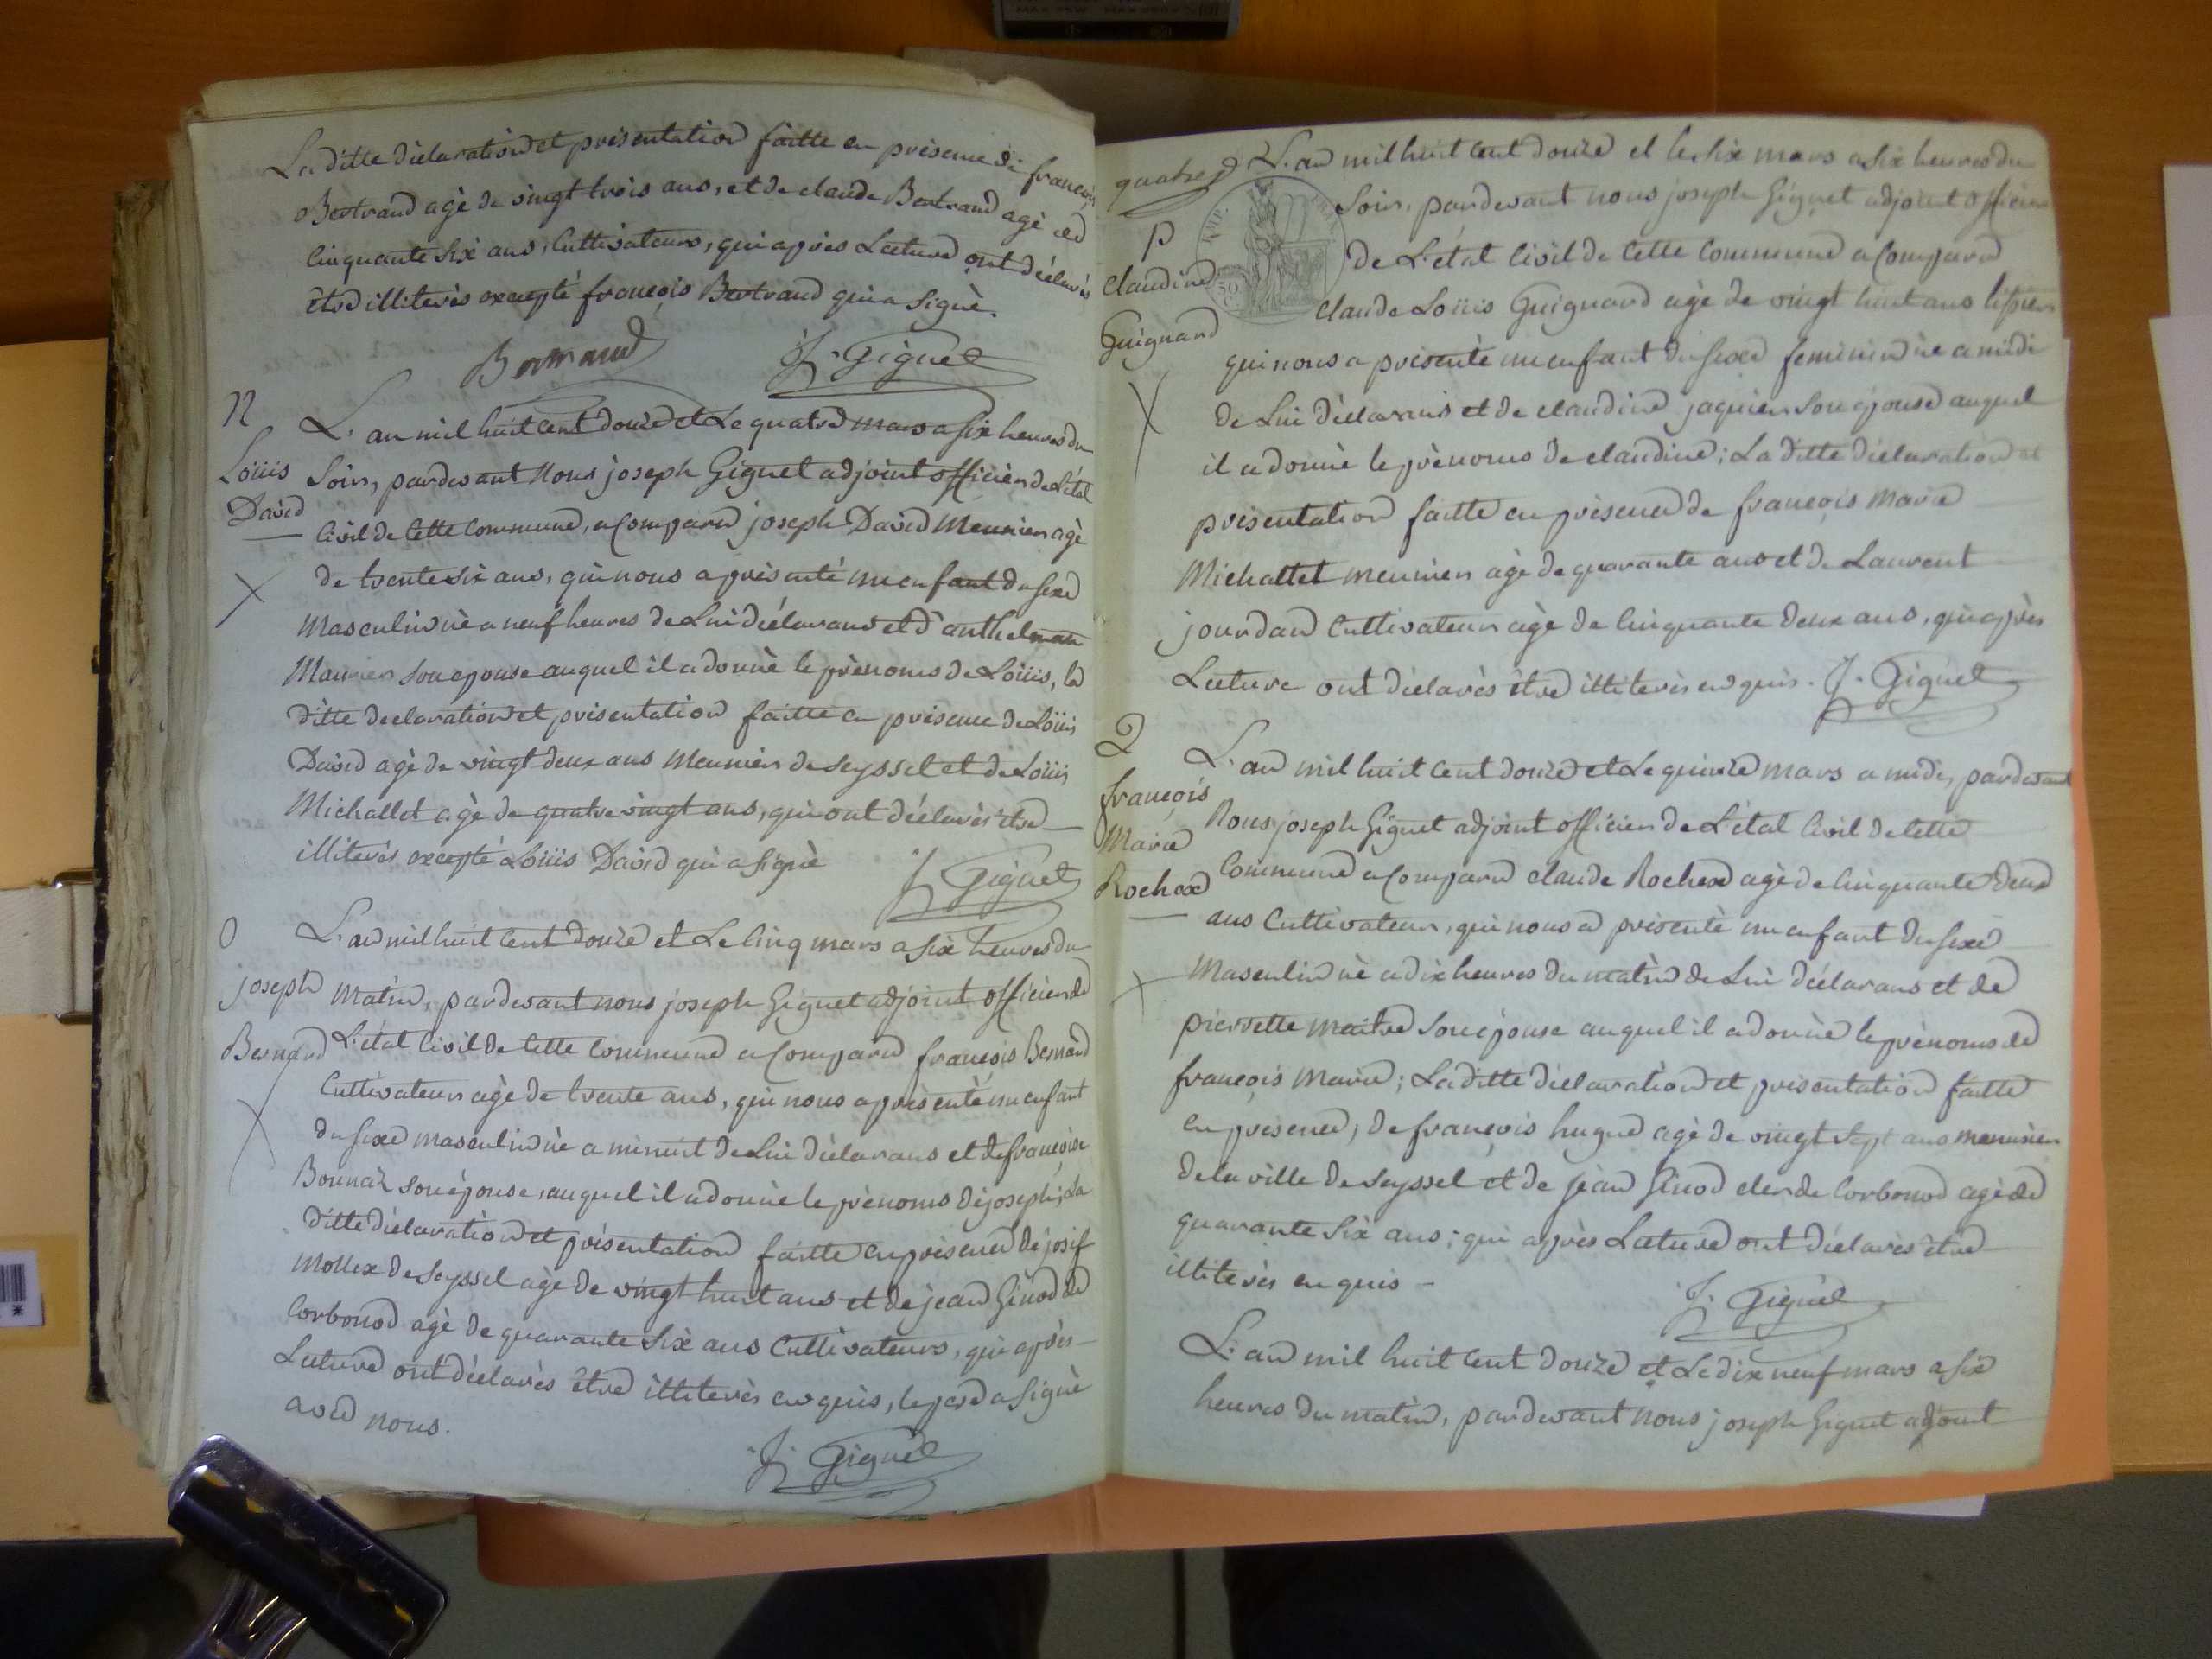 La ditte déclaration et présentation faitte en présence de françois
Bertrand agè de vingt trois ans, et de claude Bertrand agè de
Cinquante Six ans, Cultivateurs, qui après Lecture ont déclarés
être illiterès excepté françois Bertrand qui a Signè.
Bertrand J. Giguet
N
Loüis
David
L'an mil huit cent douze et Le quatre mars a Six heures du
Soir, pardevant Nous joseph Giguet adjoint officier de L'état
Civil de Cette Commune, a Comparu joseph David Meunier agè
de trente Six ans, qui nous a présenté un enfant du Sexe
Masculin né a neuf heures de Lui déclarans et d'anthelman
Meunier Son epouse auquel il a donnè le prènoms de Loüis, la
ditte declaration et présentation faitte en présence de Loüis
David agè de vingt deux ans Meunier de Seyssel et de Loüis
Michallet agè de quatre vingt ans, qui ont déclarés être
illiterès excepté Loüis David qui a Signè
J. Giguet
O
joseph
Bernard
L'an mil huit Cent douze et Le Cinq mars a Six heures du
Matin, pardevant nous joseph Giguet adjoint officier de
L'état Civil de Cette Commune a Comparu françois Bernard
Cultivateur agè de trente ans, qui nous a présentè un enfant
du Sexe masculin nè a minuit de Lui déclarans et de françoise
Bonnaz Son épouse, auquel il a donnè le prènoms de joseph; La
ditte déclaration et présentation faitte en présence de josif
Mollex de Seyssel agè de vingt huit ans et de jean Ginod de
Corbonod agè de quarante Six ans Cultivateurs, qui après
Lecture ont déclarès être illiterès en quis, le pere a Signè
avec nous.
J. Giguet
quatre
P
claudine
Guignard
L'an mil huit Cent douze et le Six mars a Six heures du
Soir, pardevant nous joseph Giguet adjoint officier
de L'état Civil de Cette Commune a Comparu
claude Loüis Guignard agè de vingt huit ans
qui nous a présentè un enfant du Sexe feminin nè a midi
de Lui déclarans et de claudine jaquier Son épouse auquel
il a donnè le prènoms de claudine; La ditte déclaration et
présentation faitte en présence de françois Marie
Michallet meunier agè de quarante ans et de Laurent
jourdan Cultivateur agè de Cinquante deux ans, qui après
Lecture ont déclarès être illiterès en quis. J. Giguet
Q
françois
Marie
Rochex
L'an mil huit Cent douze et Le quinze mars a midi, pardevant
Nous joseph Giguet adjoint officier de L'état Civil de Cette
Commune a Comparu claude Rochex agè de Cinquante deux
ans Cultivateur, qui nous a présentè un enfant du Sexe
Masculin nè a dix heures du matin de Lui déclarans et de
pierrette maitre Son épouse auquel il a donnè le prènoms de
françois Marie; La ditte déclaration et présentation faitte
en présence, de françois hugue agè de vingt Sept ans menuisier
de la ville de Seyssel et de jean Ginod clerc de Corbonod agè de
quarante Six ans; qui après Lecture ont déclarès être
illiterès en quis
J. Giguet
L'an mil huit Cent douze et Le dix neuf mars a Six
heures du matin, pardevant nous joseph Giguet adjoint